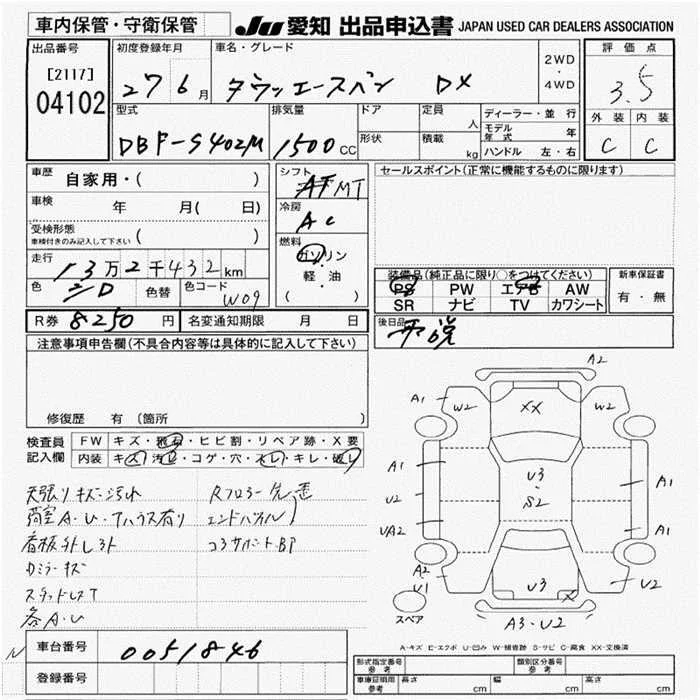 車内保管・守衛保管
JU 愛知 出品申込書 JAPAN USED CAR DEALERS ASSOCIATION
出品番号
[2117]
04102
初度登録年月
27 6月
車名・グレード
タウンエースバン DX
2WD
・
4WD
評価点
3.5
外装 内装
C C
型式
DBF-S402M
排気量
1500cc
ドア
形状
定員
人
積載
kg
ディーラー・並行
モデル年式 年
ハンドル 左・右
車歴 自家用・( )
車検 年 月(日)
受検形態
車検付きのみ記入して下さい ( )
走行 13万2千432km
色 色替 色コード W09
シフト
AT MT
冷房
AC
燃料
ガソリン
軽・油
( )
セールスポイント(正常に機能するものに限ります)
装備品(純正品に限り○をつけてください)
PS PW エアB AW
SR ナビ TV カワシート
新車保証書
有・無
後日品
R券 8250円 名変通知期限 月 日
注意事項申告欄(不具合内容等は具体的に記入して下さい)
修復歴 有 〔箇所 〕
検査員記入欄
FW キズ・飛石・ヒビ割・リペア跡・X要
内装 キズ・汚レ・コゲ・穴・スレ・キレ・破レ
天張りキズ・汚れ
荷室A・U・
看板外し3ト
ミラーキズ
スタッドレスT
各A・U
Rフロアー
エンドパネル
コアサポートBP
A2
A1
W2
XX
W2
A1
U3
・
S2
A1
U2
UA2
A1
A2
U1
U3
X
U2
スペア
A3・U2
A-キズ E-エクボ U-凹み W-補修跡 S-サビ C-腐食 XX-交換済
車台番号 0051846
登録番号
形式指定番号 参考
類別区分番号 参考
車庫証明用 参考 長さ cm 幅 cm 高さ cm